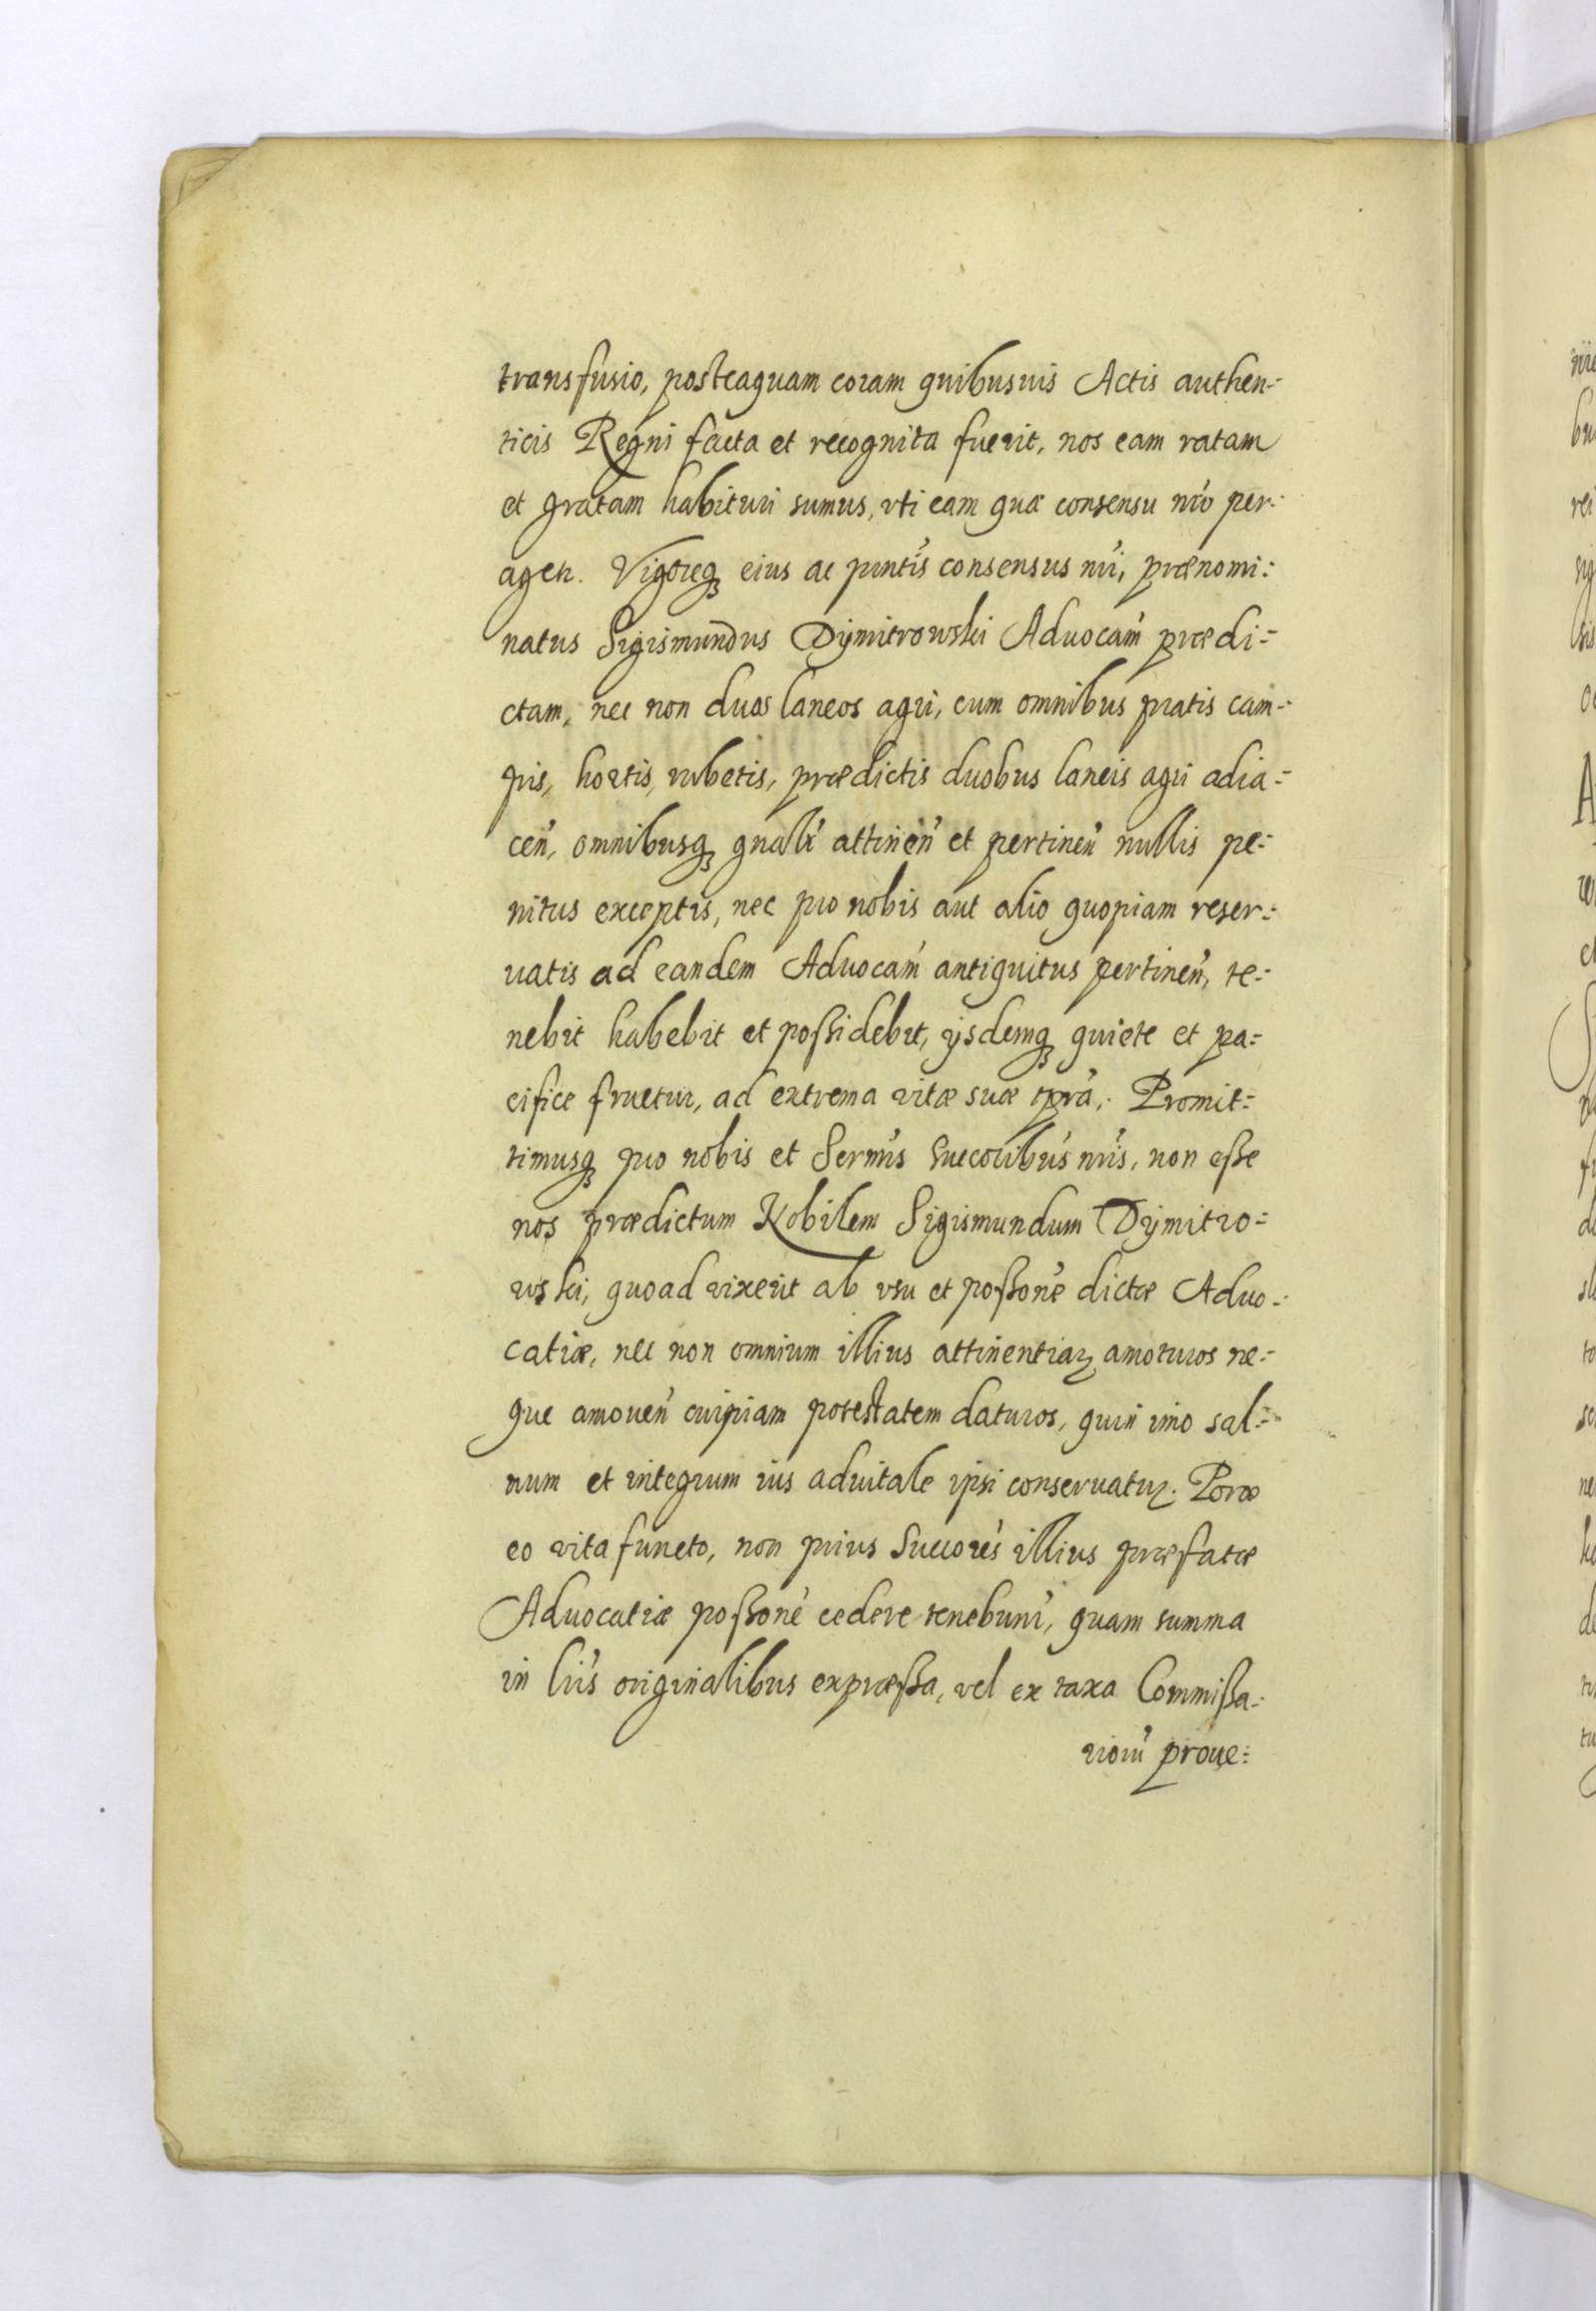 transfusio, posteaquam coram quibusuis Actis authen=
ticis Regni facta et recognita fuerit, nos eam ratam
et gratam habituri sumus, vti eam quæ consensu nr̃o per=
agetr. Vigoreq; eius ac pñntis consensus nr̃i, prænomi=
natus Sigismundus Dymitrowski Aduocam̃ prædi=
ctam, nec non duos laneos agri, cum omnibus pratis cam=
pis, hortis, rubetis, prædictis duobus laneis agri adia=
ceñ, omnibusq; gñalr̃ attineñ et pertineñ nullis pe=
nitus exceptis, nec pro nobis aut alio quopiam reser=
uatis ad eandem Aduocam̃ antiquitus pertineñ, te=
nebit habebit et poßidebit, ijsdemq; quiete et pa=
cifice fruetur, ad extrema vitæ suæ tpr̃a. Promit=
timusq; pro nobis et Serm̃is Succoribus̃ nr̃is, non eße
nos prædictum Nobilem Sigismundum Dymitro=
wski, quoad vixerit ab vsu et poßone͂ dictæ Aduo=
catiæ, nec non omnium illius attinentiaꝝ amoturos ne=
que amoueñ cuipiam potestatem daturos, quin imo sal=
uum et integrum ius aduitale ipsi conseruatuꝝ. Porro
eo vita functo, non prius Succores̃ illius præfatæ
Aduocatiæ poßone͂ cedere tenebunt̃, quam summa
in lr̃is originalibus expræßa, vel ex taxa Commißa=
riorũ proue=